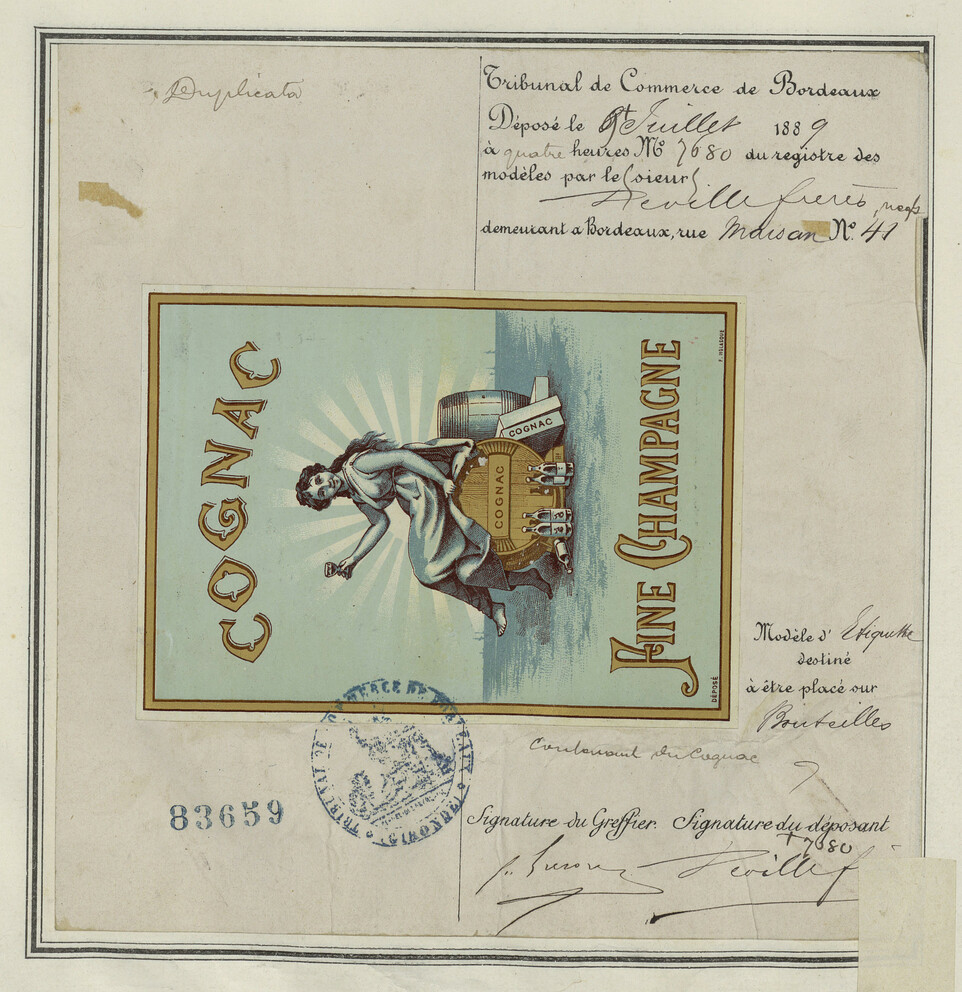 Duplicata
Tribunal de Commerce de Bordeaux
Déposé le 9 Juillet 1889
à quatre heures No 7680 du registre des
modèles par le sieurs
Déville frères, negts
demeurant à Bordeaux, rue No. 41
COGNAC
COGNAC
COGNAC
FINE CHAMPAGNE
DÉPOSÉ
Modèle d' Etiquette
destiné
à être placé sur
Bouteilles
contenant du Cognac
TRIBUNAL DE COMMERCE DE BORDEAUX (GIRONDE)
83659
Signature du Greffier. Signature du déposant
7680